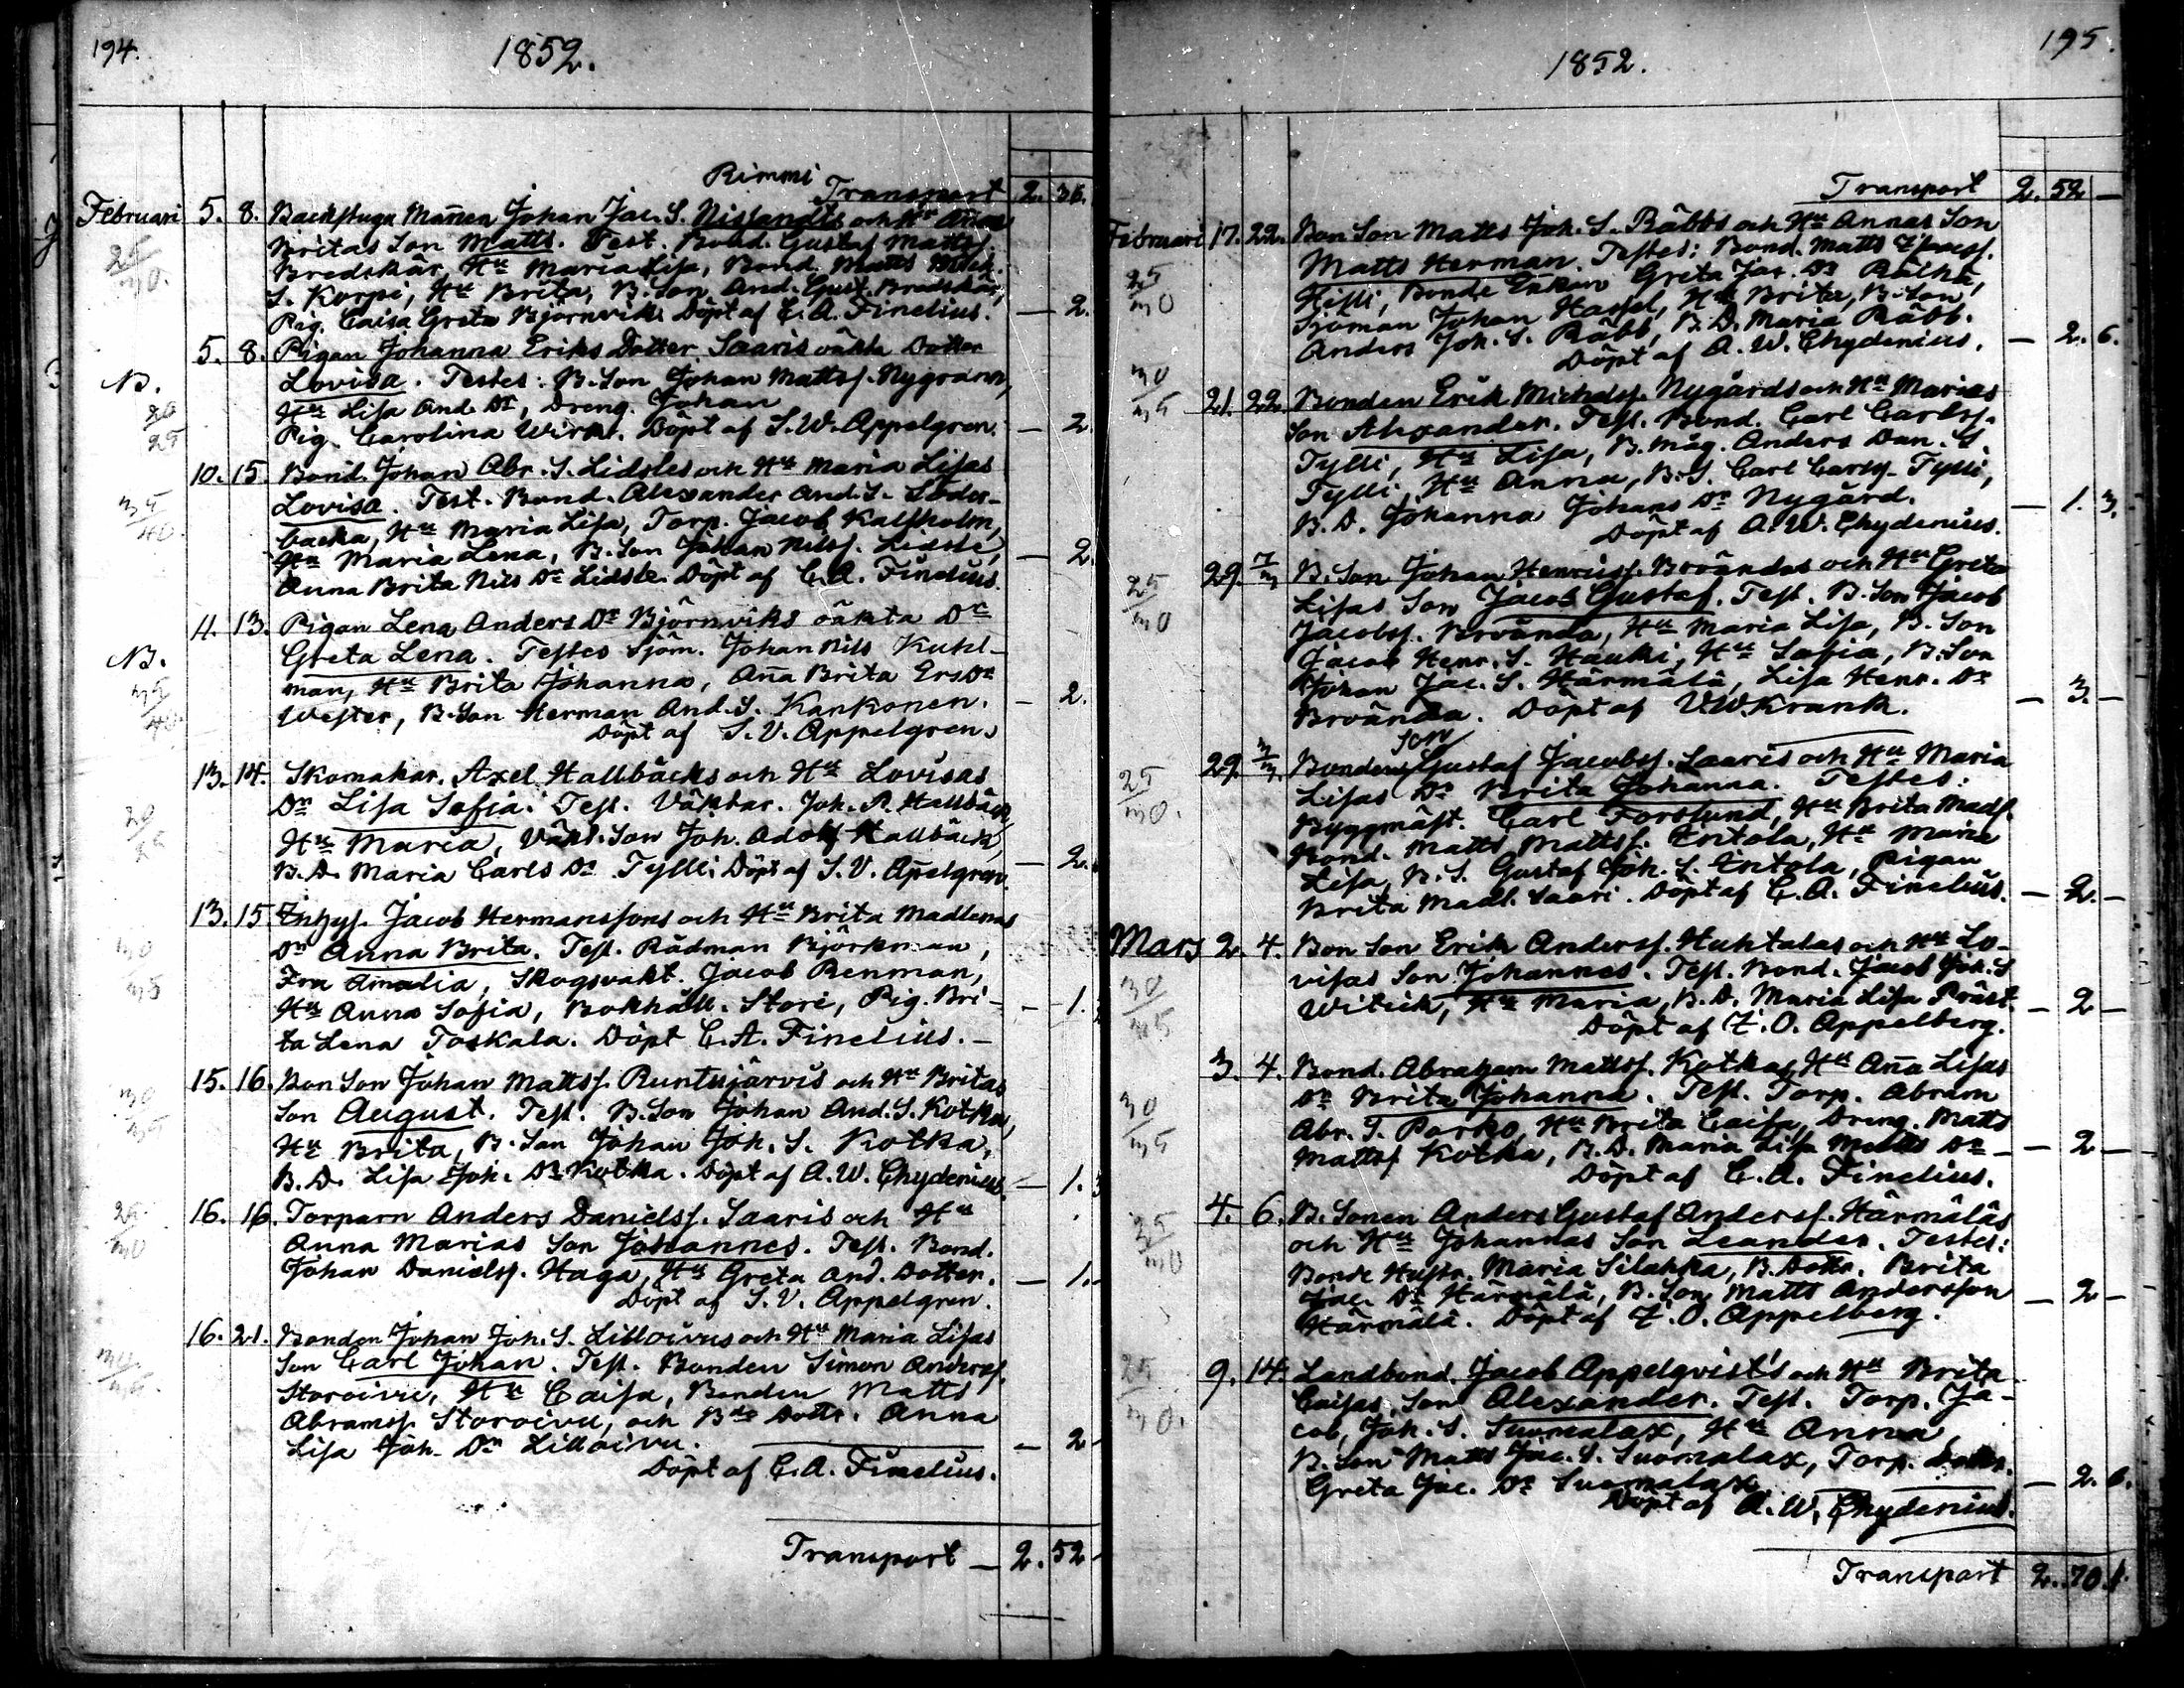 194.
1852.
Rimmi
Transport 2. 36.
Februari 5. 8. Backstugu Mannen Johan Jac. S. Nissandts och Hu Anna
25/30. Britas Son Matts. Test. Bond. Gustaf Mattss.
Bredskär, Hu Maria Lisa, Bond. Matts Mich.
S. Korpi, Hu Brita, B. Son And. Gust. Bredskär,
Pig. Caisa Greta Björnvik. Döpt af C. A. Finelius. — 2.
5. 8. Pigan Johanna Eriks Dotter Saaris oäkta Dotter
N. Lovisa. Testes: B. Son Johan Mattss. Nygrann,
20/25 Hu Lisa And. Dr, Dreng. Johan
Pig. Carolina Wirk. Döpt af S. W. Appelgren. — 2.
10. 15. Bond. Johan Abr. S. Lidstes och Hu Maria Lisas
35/40. Lovisa. Test. Bond. Alexander And. S. Söder-
backa, Hu Maria Lisa, Torp. Jacob Kalfholm,
Hu Maria Lena, B. Son Johan Nilss. Lidste, — 2.
Anna Brita Nils Dr Lidste. Döpt af C. A. Finelius.
11. 13. Pigan Lena Anders Dr Björnviks oäkta Dr
N. Greta Lena. Testes Sjöm. Johan Nils Kuhl-
35/40. man, Hu Brita Johanna, Aña Brita Ers Dr
Wester, B. Son Herman And. S. Karkonen. — 2.
Döpt af S. V. Appelgren.
13. 14. Skomakar. Axel Hallbäcks och Hu Lovisas
Dr Lisa Sofia. Test. Väktar. Joh. A. Hallbäck,
Hu Maria, Väkt. Son Joh. Adolf Hallbäck,
B. D. Maria Carls Dr Tylli. Döpt af S. V. Apelgren. — 2.
13. 15. Inhys. Jacob Hermanssons och Hu Brita Madlenas
30/35 Dr Anna Brita. Test. Rådman Björkman,
Fru Amalia, Skogsvakt. Jacob Renman,
Hu Anna Sofia, Bokhåll. Store, Pig. Bri- — 1.
ta Lena Toskala. Döpt C. A. Finelius. —
15. 16. Bon Son Johan Mattss. Runtujärvis och Hu Britas
30/35 Son August. Test. B. Son Johan And. S. Kotka,
Hu Brita, B. Son Johan Joh. S. Kotka,
B. D. Lisa Joh. Dr Kotka. Döpt af A. W. Chydenius. — 1. 3
16. 16. Torparn Anders Danielss. Saaris och Hu
25/30 Anna Marias Son Johannes. Test. Bond.
Johan Danielss. Haga, Hu Greta And. Dotter. — 1.
Döpt af S. V. Appelgren.
16. 21. Bonden Johan Joh. S. Lilloivus och Hu Maria Lisas
Son Carl Johan. Test. Bonden Simon Anderss.
Storoivu, Hu Caisa, Bonden Matts
Abramss. Storoivu, och Bde Dottr. Anna
Lisa Joh. Dr Lilloivu. — 2 -
Döpt af C. A. Finelius.
Transport — 2. 52 -
195.
1852.
Transport 2. 52 —
Februari 17. 22. Bon Son Matts Joh. S. Räbbs och Hu Annas Son
25/30 Matts Herman. Testes: Bond. Matts Isacss.
Hilli, Bonde Enkan Greta Jac. Dr Räihä,
Sjöman Johan Hassel, Hu Brita, B. Son
Anders Joh. S. Räbb, B. D. Maria Räbb. — 2. 6.
Döpt af A. W. Chydenius.
30/35 21. 22. Bonden Erik Michelss. Nygårds och Hu Marias
Son Alexander. Test. Bond. Carl Carlss.
Tylli, Hu Lisa, B. Måg. Anders Dan. S.
Tylli, Hu Anna, B. S. Carl Carlss. Tylli,
B. D. Johanna Johans Dr Nygård. — 1. 3.
Döpt af A. W. Chydenius.
29. 7/3 B. Son Johan Henricss. Brvändas och Hu Greta
25/30 Lisas Son Jacob Gustaf. Test. B. Son Jacob
Jacobss. Brvända, Hu Maria Lisa, B. Son
Jacob Henr. S. Hauki, Hu Sofia, B. Son
Johan Jac. S. Härmälä, Lisa Henr. Dr — 3. —
Brvända. Döpt af V. W. Krank.
Son
29. 3/3 Bondens Gustaf Jacobss. Saaris och Hu Maria
25/30. Lisas Dr Brita Johanna. Testes:
Byggmäst. Carl Forslund, Hu Brita Madl.
Bond. Matts Mattss. Entola, Hu Maria
Lisa, B. S. Gustaf Joh. S. Entola, Pigan
Brita Madl. Saari. Döpt af C. A. Finelius. — 2. —
Mars 2. 4. Bon Son Erik Anderss. Huhtalas och Hu Lo-
30/35 visas Son Johannes. Test. Bond. Jacob Joh. S
Witick, Hu Maria, B. D. Maria Lisa Präst. — 2 —
Döpt af F. O. Appelberg.
3. 4. Bond. Abraham Mattss. Kotkas, Hu Aña Lisas
30/35 Dr Brita Johanna. Test. Torp. Abram
Abr. S. Porko, Hu Brita Caisa, Dreng. Matts
Mattss Kotka, B. D. Maria Lisa Matts Dr — — 2 —
Döpt af C. A. Finelius.
4. 6. B. Sonen Anders Gustaf Anderss. Härmäläs
och Hu Johannas Son Leander. Testes:
Bonde Hustr. Maria Silakka, B. Dottr. Brita
Jac. Dr Härmälä, B. Son Matts Andersson — 2 —
Härmälä. Döpt af F. O. Appelberg.
9. 14. Landbond. Jacob Appelqvist's och Hu Brita
25/30. Caisas Son Alexander. Test. Torp. Ja-
cob Joh. S. Suomalax, Hu Anna,
B. Son Matts Jac. S. Suomalax, Torp. Dottr.
Greta Jac. Dr Suomalax — 2. 6.
Döpt af A. W. Chydenius.
Transport 2. 70.